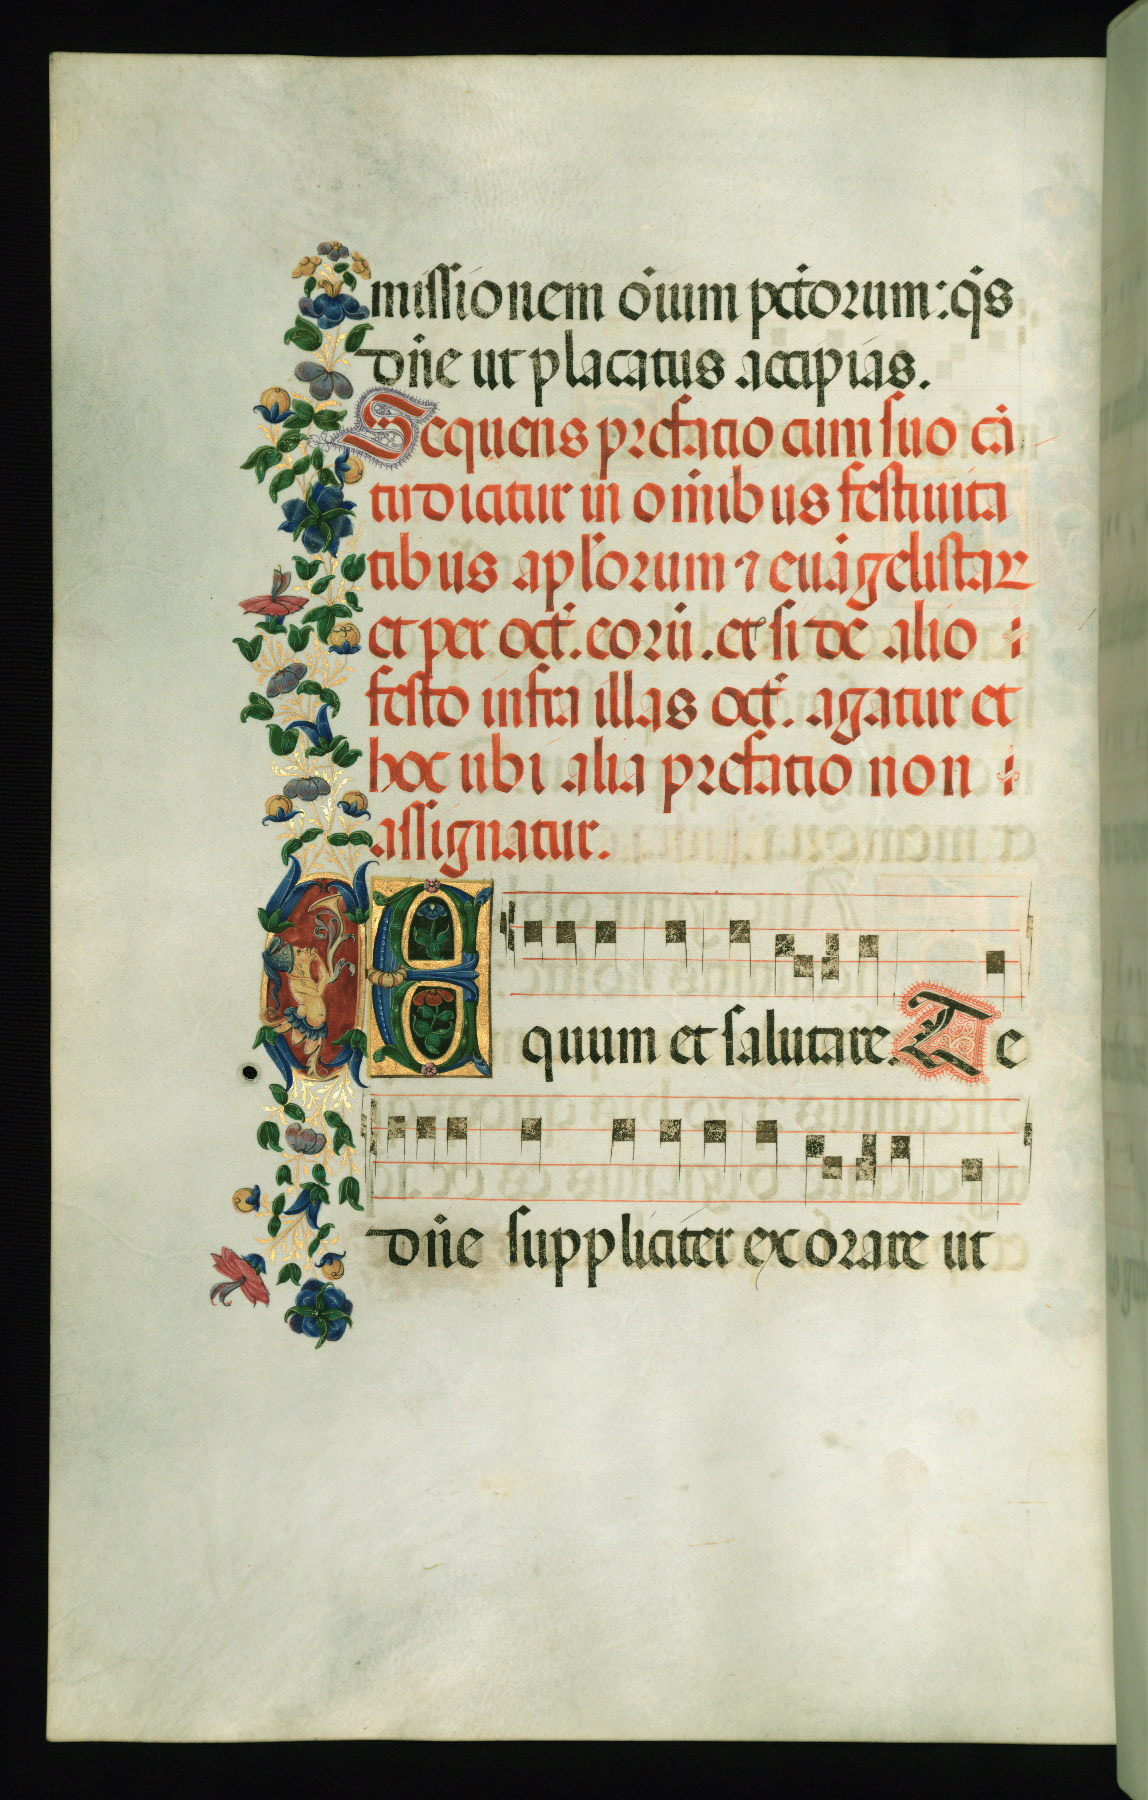 missionem oīum pctorum: qs
dñe ut placatus accipias.
Sequens prefatio cum suo cā
tu dicitur in omībus festivita
tibus aplorum ⁊ euāgelistaꝝ
et per oct. eorū. et si de alio
festo infra illas oct. agatur et
hoc ubi alia prefatio non
assignatur.
Equum et salutare. Te
dñe suppliciter exorare ut